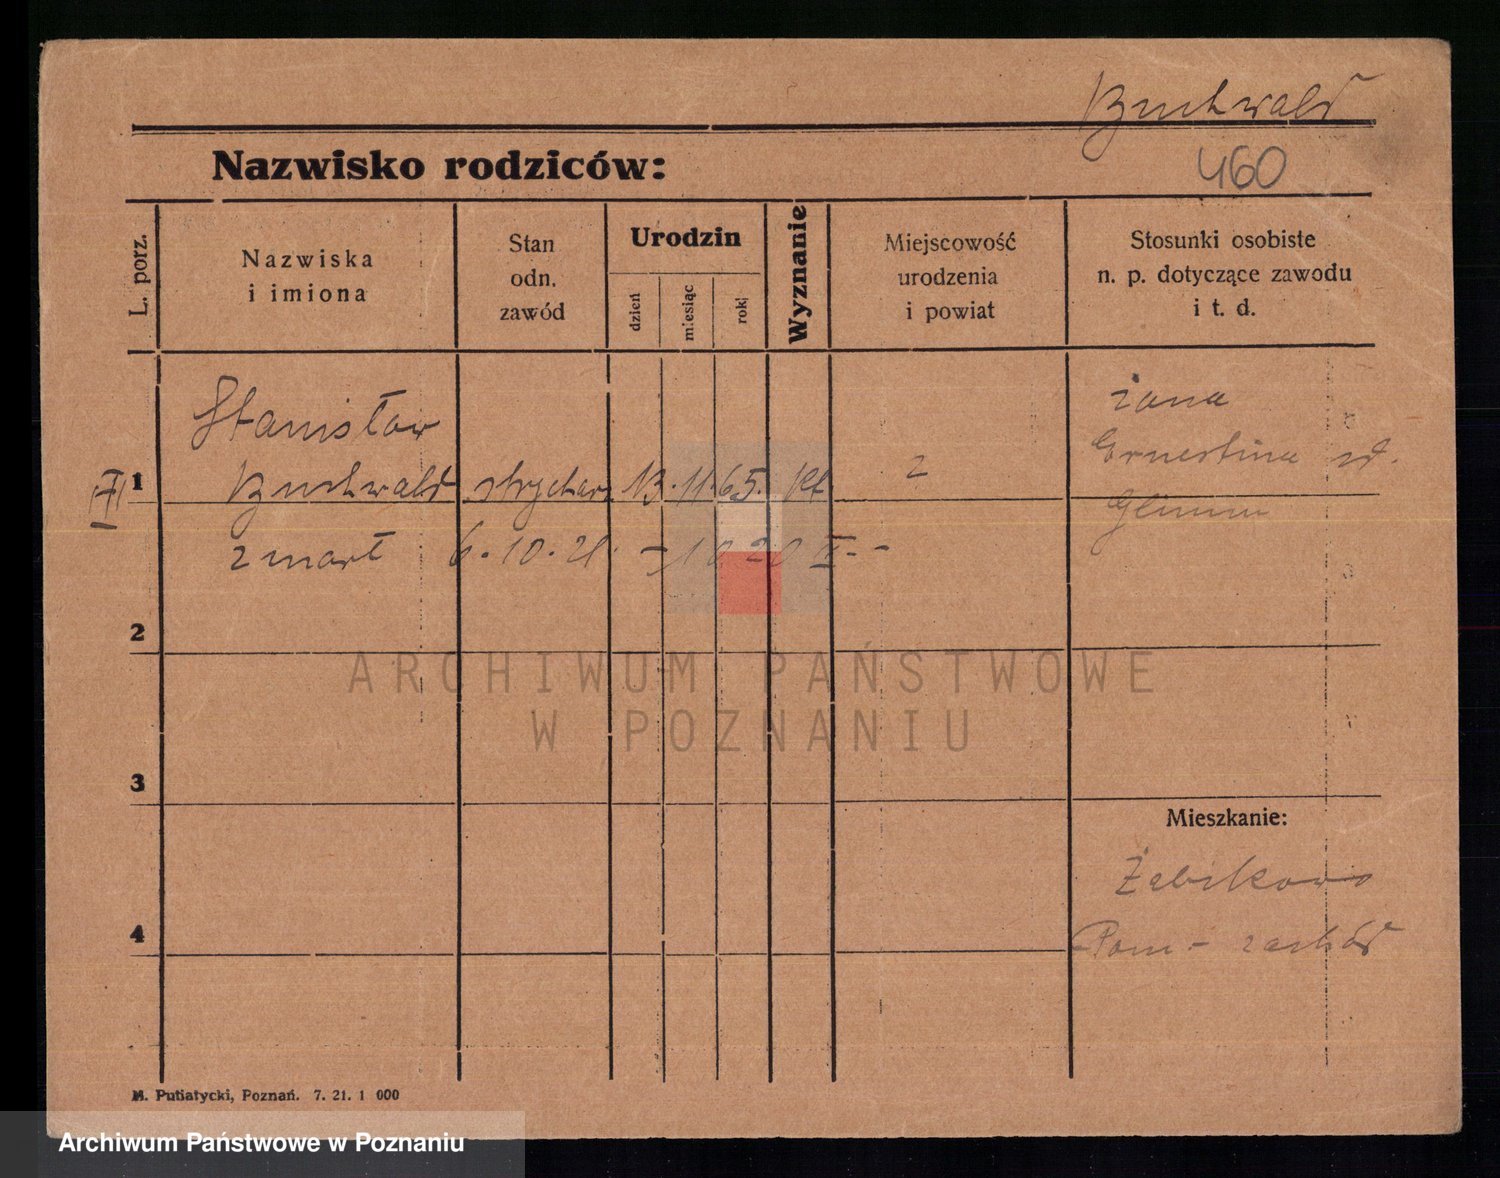 Buchwald
460
Nazwisko rodziców:
L. porz.
Nazwiska
i imiona
Stan
odn.
zawód
Urodzin
dzień
miesiąc
rok
Wyznanie
Miejscowość
urodzenia
i powiat
Stosunki osobiste
n. p. dotyczące zawodu
i t. d.
Stanisław
żona
Ernestina
III 1 Buchwald strycharz 13. 11. 65. kt
zmarł 6. 10. 21.
2
3
Mieszkanie:
Żabikowo
4
Pozn - zachód
ARCHIWUM PAŃSTWOWE
W POZNANIU
M. Putiatycki, Poznań. 7. 21. 1 000
Archiwum Państwowe w Poznaniu